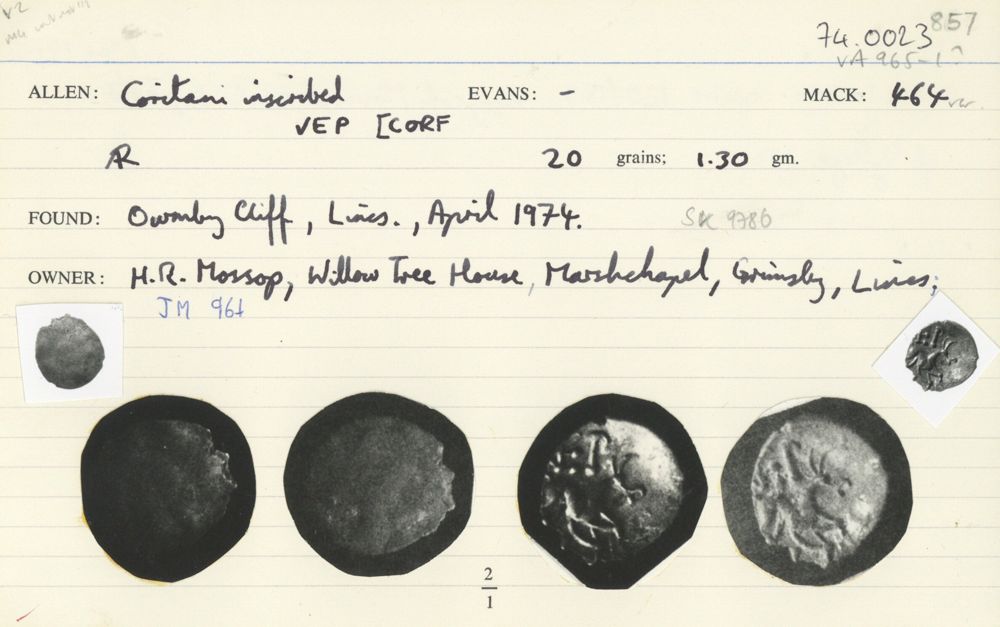 V2
857
74.0023
VA 965-1?
ALLEN: Coritani inscribed EVANS: - MACK: 464 var.
VEP [CORF
AR 20 grains; 1.30 gm.
FOUND: Owmby Cliff, Lincs., April 1974. SK 9786
OWNER: H.R. Mossop, Willow Tree House, Marshchapel, Grimsby, Lincs;
JM 961
2
1